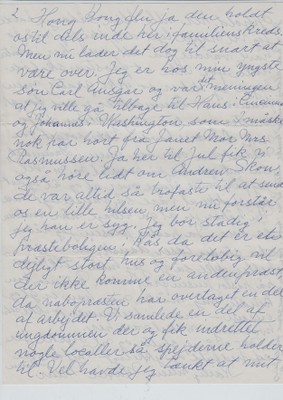 2.
Hong Kong flu ja den holdt
også til dels inde her i familiens kreds.
Men nu lader det dog til snart at
være over. Jeg er hos min yngste
søn Carl Ansgar og var det meningen
at jeg ville gå tilbage til Hans i
og Johannes i Washington som I måske
nok har hørt fra Janet Mor Mrs.
Rasmussen. Ja her til Jul fik vi
også høre lidt om Andrew Skou,
de var altid så trofaste til at sende
os en lille hilsen men nu forstår
jeg han er syg. Jeg bor stadig i
præsteboligen i da det er et
dejligt stort hus og foreløbig vil
der ikke komme en anden præst,
da nabopræsten har overtaget en del
af arbejdet. Vi samlede en del af
ungdommen der og fik indrettet
nogle localler så spejderne holder
til. Vel havde jeg tænkt at mit